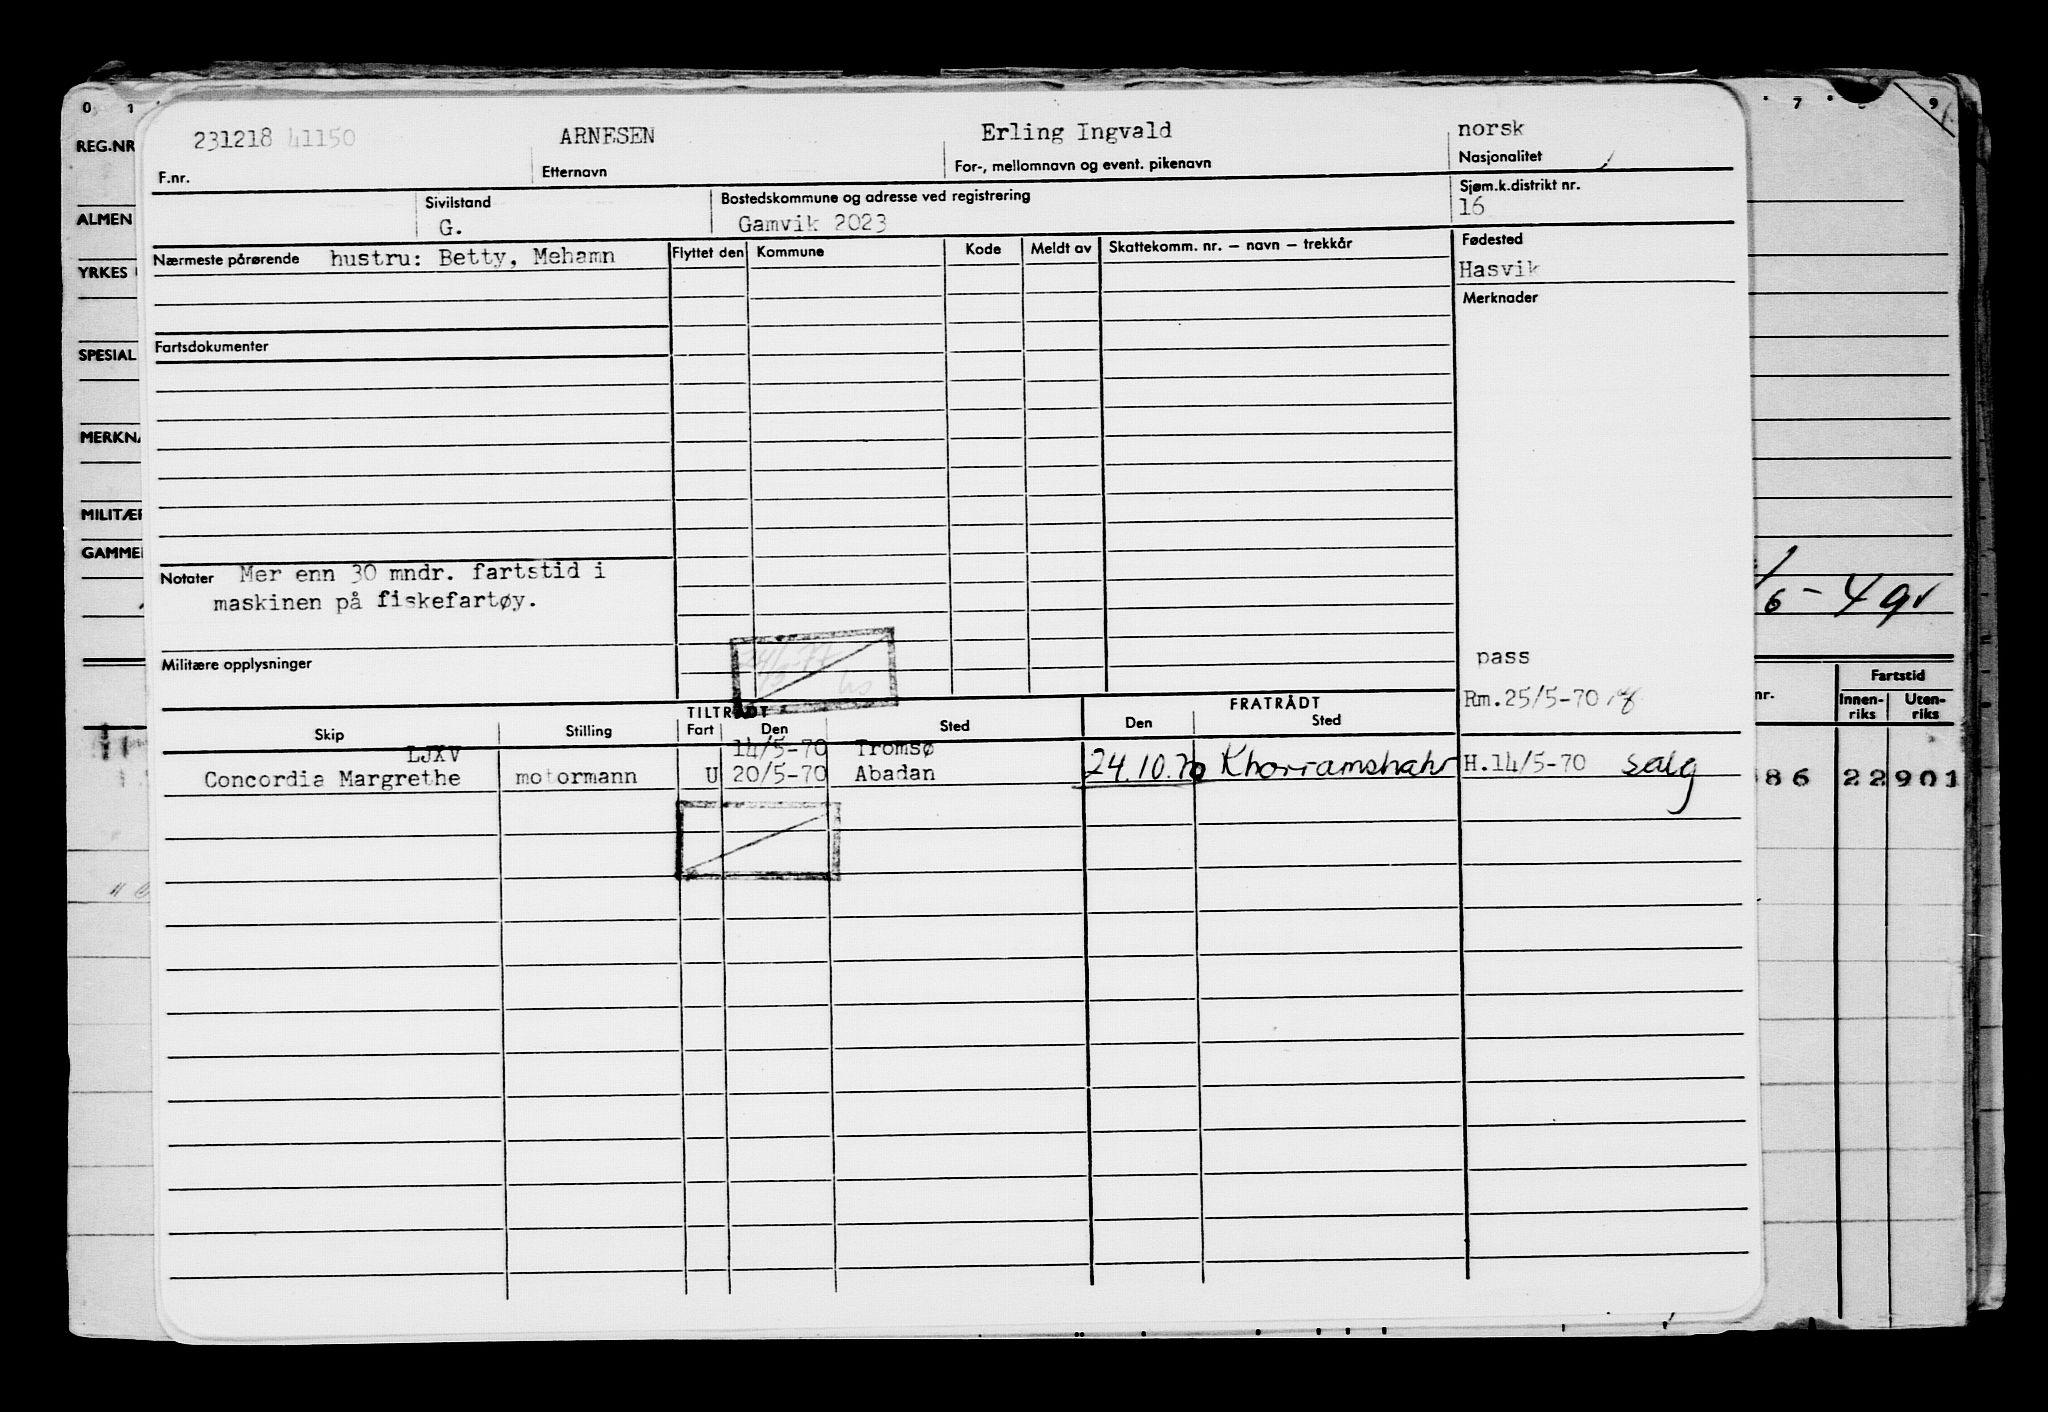 0 1 7 9
REG.NR
ALMEN
YRKES
SPESIAL
MERKNA
MILITÆR
GAMMEL
231218 41150 ARNESEN Erling Ingvald norsk
F.nr. Etternavn For-, mellomnavn og event. pikenavn Nasjonalitet
Sivilstand Bostedskommune og adresse ved registrering Sjøm.k.distrikt nr.
G. Gamvik 2023 16
Nærmeste pårørende hustru: Betty, Mehamn Flyttet den Kommune Kode Meldt av Skattekomm. nr. – navn – trekkår Fødested
Hasvik
Merknader
Fartsdokumenter
Notater Mer enn 30 mndr. fartstid i
maskinen på fiskefartøy.
Militære opplysninger
pass
Rm.25/5-70
TILTRÅDT FRATRÅDT
Skip Stilling Fart Den Sted Den Sted
LJXV 14/5-70 Tromsø
Concordia Margrethe motormann U 20/5-70 Abadan 24.10.70 Khorramshahr H.14/5-70 salg
/6 - 49
nr. Fartstid
Innen-riks Uten-riks
86 22 901